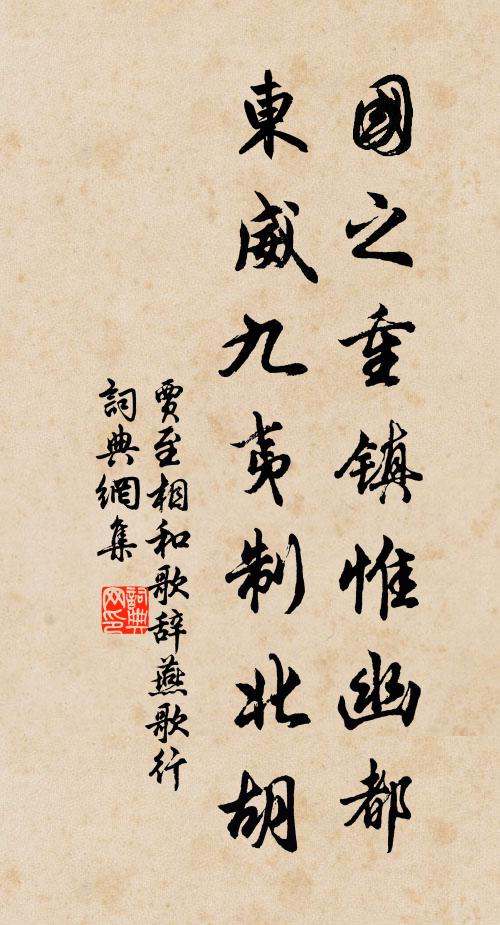 國之重镇惟幽都
東威九夷制北胡
賈至相和歌辞燕歌行
詞典網集
詞典
网印